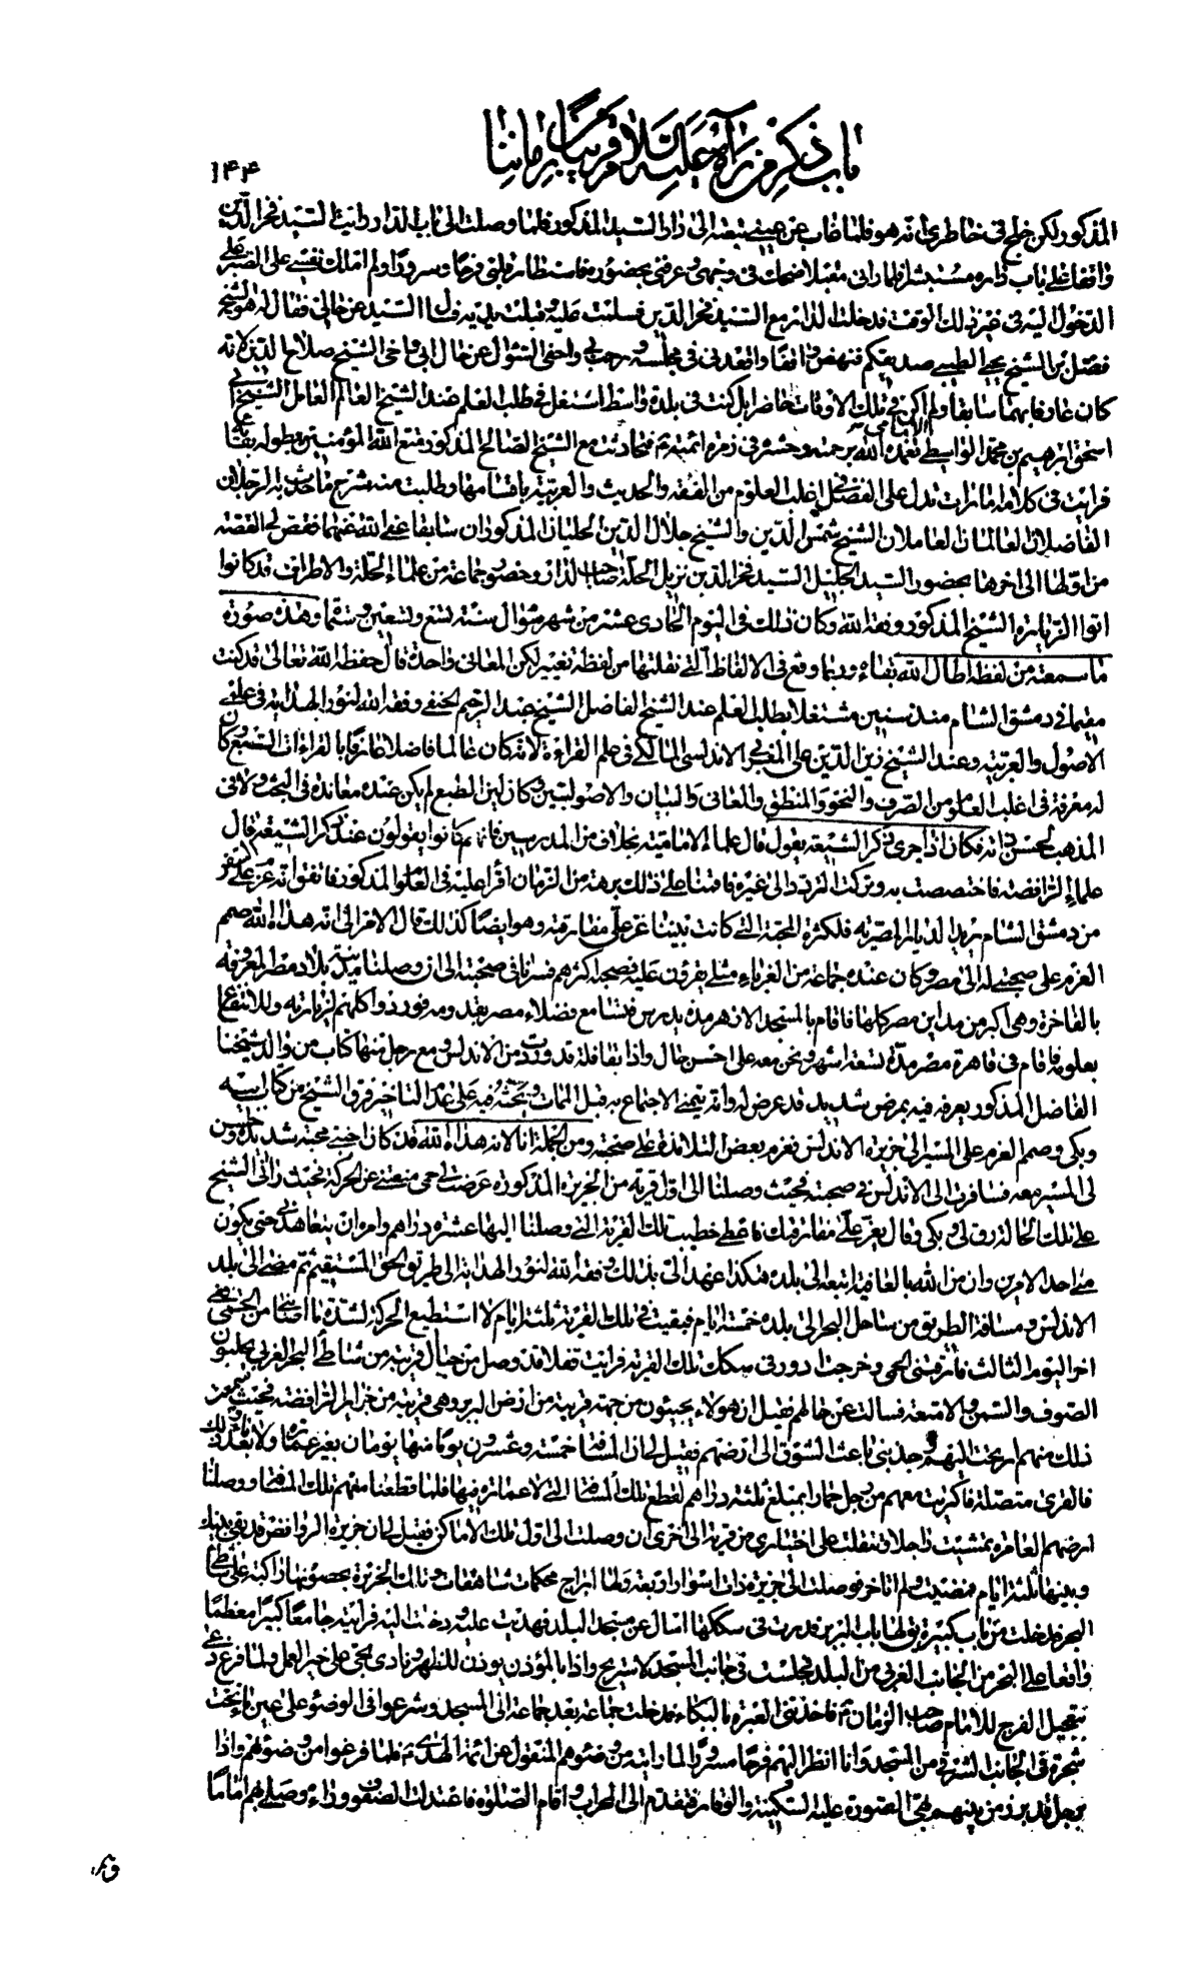 باب ذكر من رآه عليه السلام قريبا من زماننا
١۴۴
المذكور لكن خلج في خاطري انه هو فلما غاب عن عيني تبعته الى دار السيد المذكور فلما وصلت الى باب الدار رايت السيد فخر الدين
واقفا على باب داره مستبشرا فلما راني مقبلا ضحك في وجهي وعرفني بحضوره فاستطار قلبي فرحا وسرورا ولم املك نفسي على الصبر على
الدخول اليه في غير ذلك الوقت فدخلت الدار مع السيد فخر الدين فسلمت عليه وقبلت يديه فسال السيد عن حالي فقال له هو الشيخ
فضل بن الشيخ يحيى الطيبي صديقكم فنهض واقفا واقعدني في مجلسه ورحب بي واحفى السؤال عن حال ابي واخي الشيخ صلاح الدين لانه
كان عارفا بهما سابقا ولم اكن في تلك الاوقات حاضرا بل كنت في بلدة واسط اشتغل في طلب العلم عند الشيخ العالم العامل الشيخ ابي
اسحق ابرهيم بن محمد الواسطي الامامي تغمده الله برحمته وحشره في زمرة ائمته ع فتحادثت مع الشيخ الصالح المذكور متع الله المؤمنين بطول بقائه
فرايت في كلامه امارات تدل على الفضل في اغلب العلوم من الفقه والحديث والعربية باقسامها وطلبت منه شرح ما حدث به الرجلان
الفاضلان العالمان العاملان الشيخ شمس الدين والشيخ جلال الدين الحليان المذكوران سابقا عفى الله عنهما فقص لي القصة
من اولها الى اخرها بحضور السيد الجليل السيد فخر الدين نزيل الحلة صاحب الدار وحضور جماعة من علماء الحلة والاطراف قد كانوا
اتوا لزيارة الشيخ المذكور وفقه الله وكان ذلك في اليوم الحادي عشر من شهر شوال سنة تسع وتسعين وستمائة وهذه صورة
ما سمعته من لفظه اطال الله بقاءه وربما وقع في الالفاظ التي نقلتها من لفظه تغيير لكن المعاني واحدة قال حفظه الله تعالى قد كنت
مقيما في دمشق الشام منذ سنين مشتغلا بطلب العلم عند الشيخ الفاضل الشيخ عبد الرحيم الحنفي وفقه الله لنور الهداية في علمي
الاصول والعربية وعند الشيخ زين الدين علي المغربي الاندلسي المالكي في علم القراءة لانه كان عالما فاضلا عارفا بالقراءات السبع وكان
له معرفة في اغلب العلوم من الصرف والنحو والمنطق والمعاني والبيان والاصولين وكان لين الطبع لم يكن عنده معاندة في البحث ولا في
المذهب لحسن ذاته فكان اذا جرى ذكر الشيعة يقول قال علماء الامامية بخلاف من المدرسين فانهم كانوا يقولون عند ذكر الشيعة قال
علماء الرافضة فاختصصت به وتركت التردد الى غيره فاقمنا على ذلك برهة من الزمان اقرأ عليه في العلوم المذكورة فاتفق انه عزم على السفر
من دمشق الشام يريد الديار المصرية فلكثرة المحبة التي كانت بيننا عز علي مفارقته وهو ايضا كذلك فال الامر الى انه هداه الله صمم
العزم على صحبتي له الى مصر وكان عنده جماعة من الغرباء مثلي يقرؤن عليه فصحبه اكثرهم فسرنا في صحبته الى ان وصلنا مدينة بلاد مصر المعروفة
بالفاخرة وهي اكبر من مداين مصر كلها فاقام بالمسجد الازهر مدة يدرس فتسامع فضلاء مصر بقدومه فوردوا كلهم لزيارته وللانتفاع
بعلومه فاقام في قاهرة مصر مدة تسعة اشهر ونحن معه على احسن حال واذا بقافلة قد وردت من الاندلس ومع رجل منها كتاب من والد شيخنا
الفاضل المذكور يعرفه فيه بمرض شديد قد عرض له وانه يتمنى الاجتماع به قبل الممات ويحثه فيه على عدم التاخير فرق الشيخ من كتاب ابيه
وبكى وصمم العزم على المسير الى جزيرة الاندلس فعزم بعض التلامذة على صحبته ومن الجملة انا لانه هداه الله قد كان احبني محبة شديدة وحسن
لي المسير معه فسافرت الى الاندلس في صحبته فحيث وصلنا الى اول قرية من الجزيرة المذكورة عرضت لي حمى منعتني عن الحركة فحيث راني الشيخ
على تلك الحالة رق لي وبكى وقال يعز علي مفارقتك فاعطى خطيب تلك القرية التي وصلنا اليها عشرة دراهم وامره ان يتعاهدني حتى يكون
مني احد الامرين وان من الله بالعافية اتبعه الى بلده هكذا عهد الي بذلك وفقه الله لنور الهداية الى طريق الحق المستقيم ثم مضى الى بلد
الاندلس ومسافة الطريق من ساحل البحر الى بلده خمسة ايام فبقيت في تلك القرية ثلثة ايام لا استطيع الحركة لشدة ما اصابني من الحمى ففي
اخر اليوم الثالث فارقتني الحمى وخرجت ادور في سكك تلك القرية فرايت قفلا قد وصل من جبال قريبة من شاطئ البحر الغربي يجلبون
الصوف والسمن والامتعة فسالت عن حالهم فقيل ان هؤلاء يجيئون من جهة قريبة من ارض البربر وهي قريبة من جزاير الرافضة فحيث سمعت
ذلك منهم ارتحت اليهم وجذبني باعث الشوق الى ارضهم فقيل لي ان المسافة خمسة وعشرون يوما منها يومان بغير عمارة ولا ماء وبعد ذلك
فالقرى متصلة فاكتريت معهم من رجل حمارا بمبلغ ثلثة دراهم لقطع تلك المسافة التي لا عمارة فيها فلما قطعنا معهم تلك المسافة ووصلنا
ارضهم العامرة تمشيت راجلا وتنقلت على اختياري من قرية الى اخرى الى ان وصلت الى اول تلك الاماكن فقيل لي ان جزيرة الروافض قد بقي بينك
وبينها ثلثة ايام فمضيت ولم اتاخر فوصلت الى جزيرة ذات اسوار اربعة ولها ابراج محكمات شاهقات وتلك الجزيرة بحصونها راكبة على شاطئ
البحر فدخلت من باب كبيرة يقال لها باب البربر فدرت في سككها اسال عن مسجد البلد فهديت عليه ودخلت اليه فرايته جامعا كبيرا معظما
واقعا على البحر من الجانب الغربي من البلد فجلست في جانب المسجد لاستريح واذا بالمؤذن يؤذن للظهر ونادى بحي على خير العمل ولما فرغ دعا
بتعجيل الفرج للامام صاحب الزمان ع فاخذتني العبرة بالبكاء فدخلت جماعة بعد جماعة الى المسجد وشرعوا في الوضوء على عين ماء تحت
شجرة في الجانب الشرقي من المسجد وانا انظر اليهم فرحا مسرورا لما رايته من وضوئهم المنقول عن ائمة الهدى ع فلما فرغوا من وضوئهم واذا
برجل قد برز من بينهم بهي الصورة عليه السكينة والوقار فتقدم الى المحراب واقام الصلوة فاعتدلت الصفوف وراءه وصلى بهم اماما